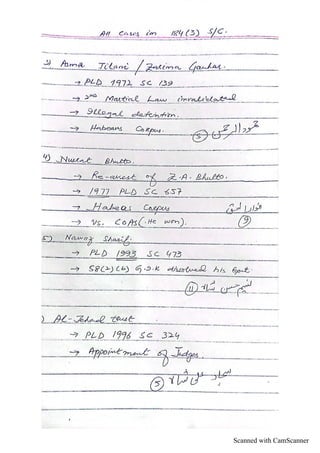 All Cases im 184(3) S/C.
3) Asma Jilani / Zarina Gauhar.
→ PLD 1972 SC 139
→ 2nd Martial Law invalidated
→ Illegal detention.
→ Habeans Corpus. (5) حمود الرحمن
4) Nusrat Bhutto.
→ Re-arrest of Z.A. Bhutto.
→ 1977 PLD SC 657
→ Habeas Corpus انوار الحق
→ Vs. COAS (He won). (9)
5) Nawaz Sharif.
→ PLD 1993 SC 473
→ 58(2)(b) G.I.K dissolved his Govt.
(11) نسیم حسن شاہ
) AL-Jehad trust
→ PLD 1996 SC 324
→ Appointment of Judges.
(5) سجاد علی شاہ
Scanned with CamScanner